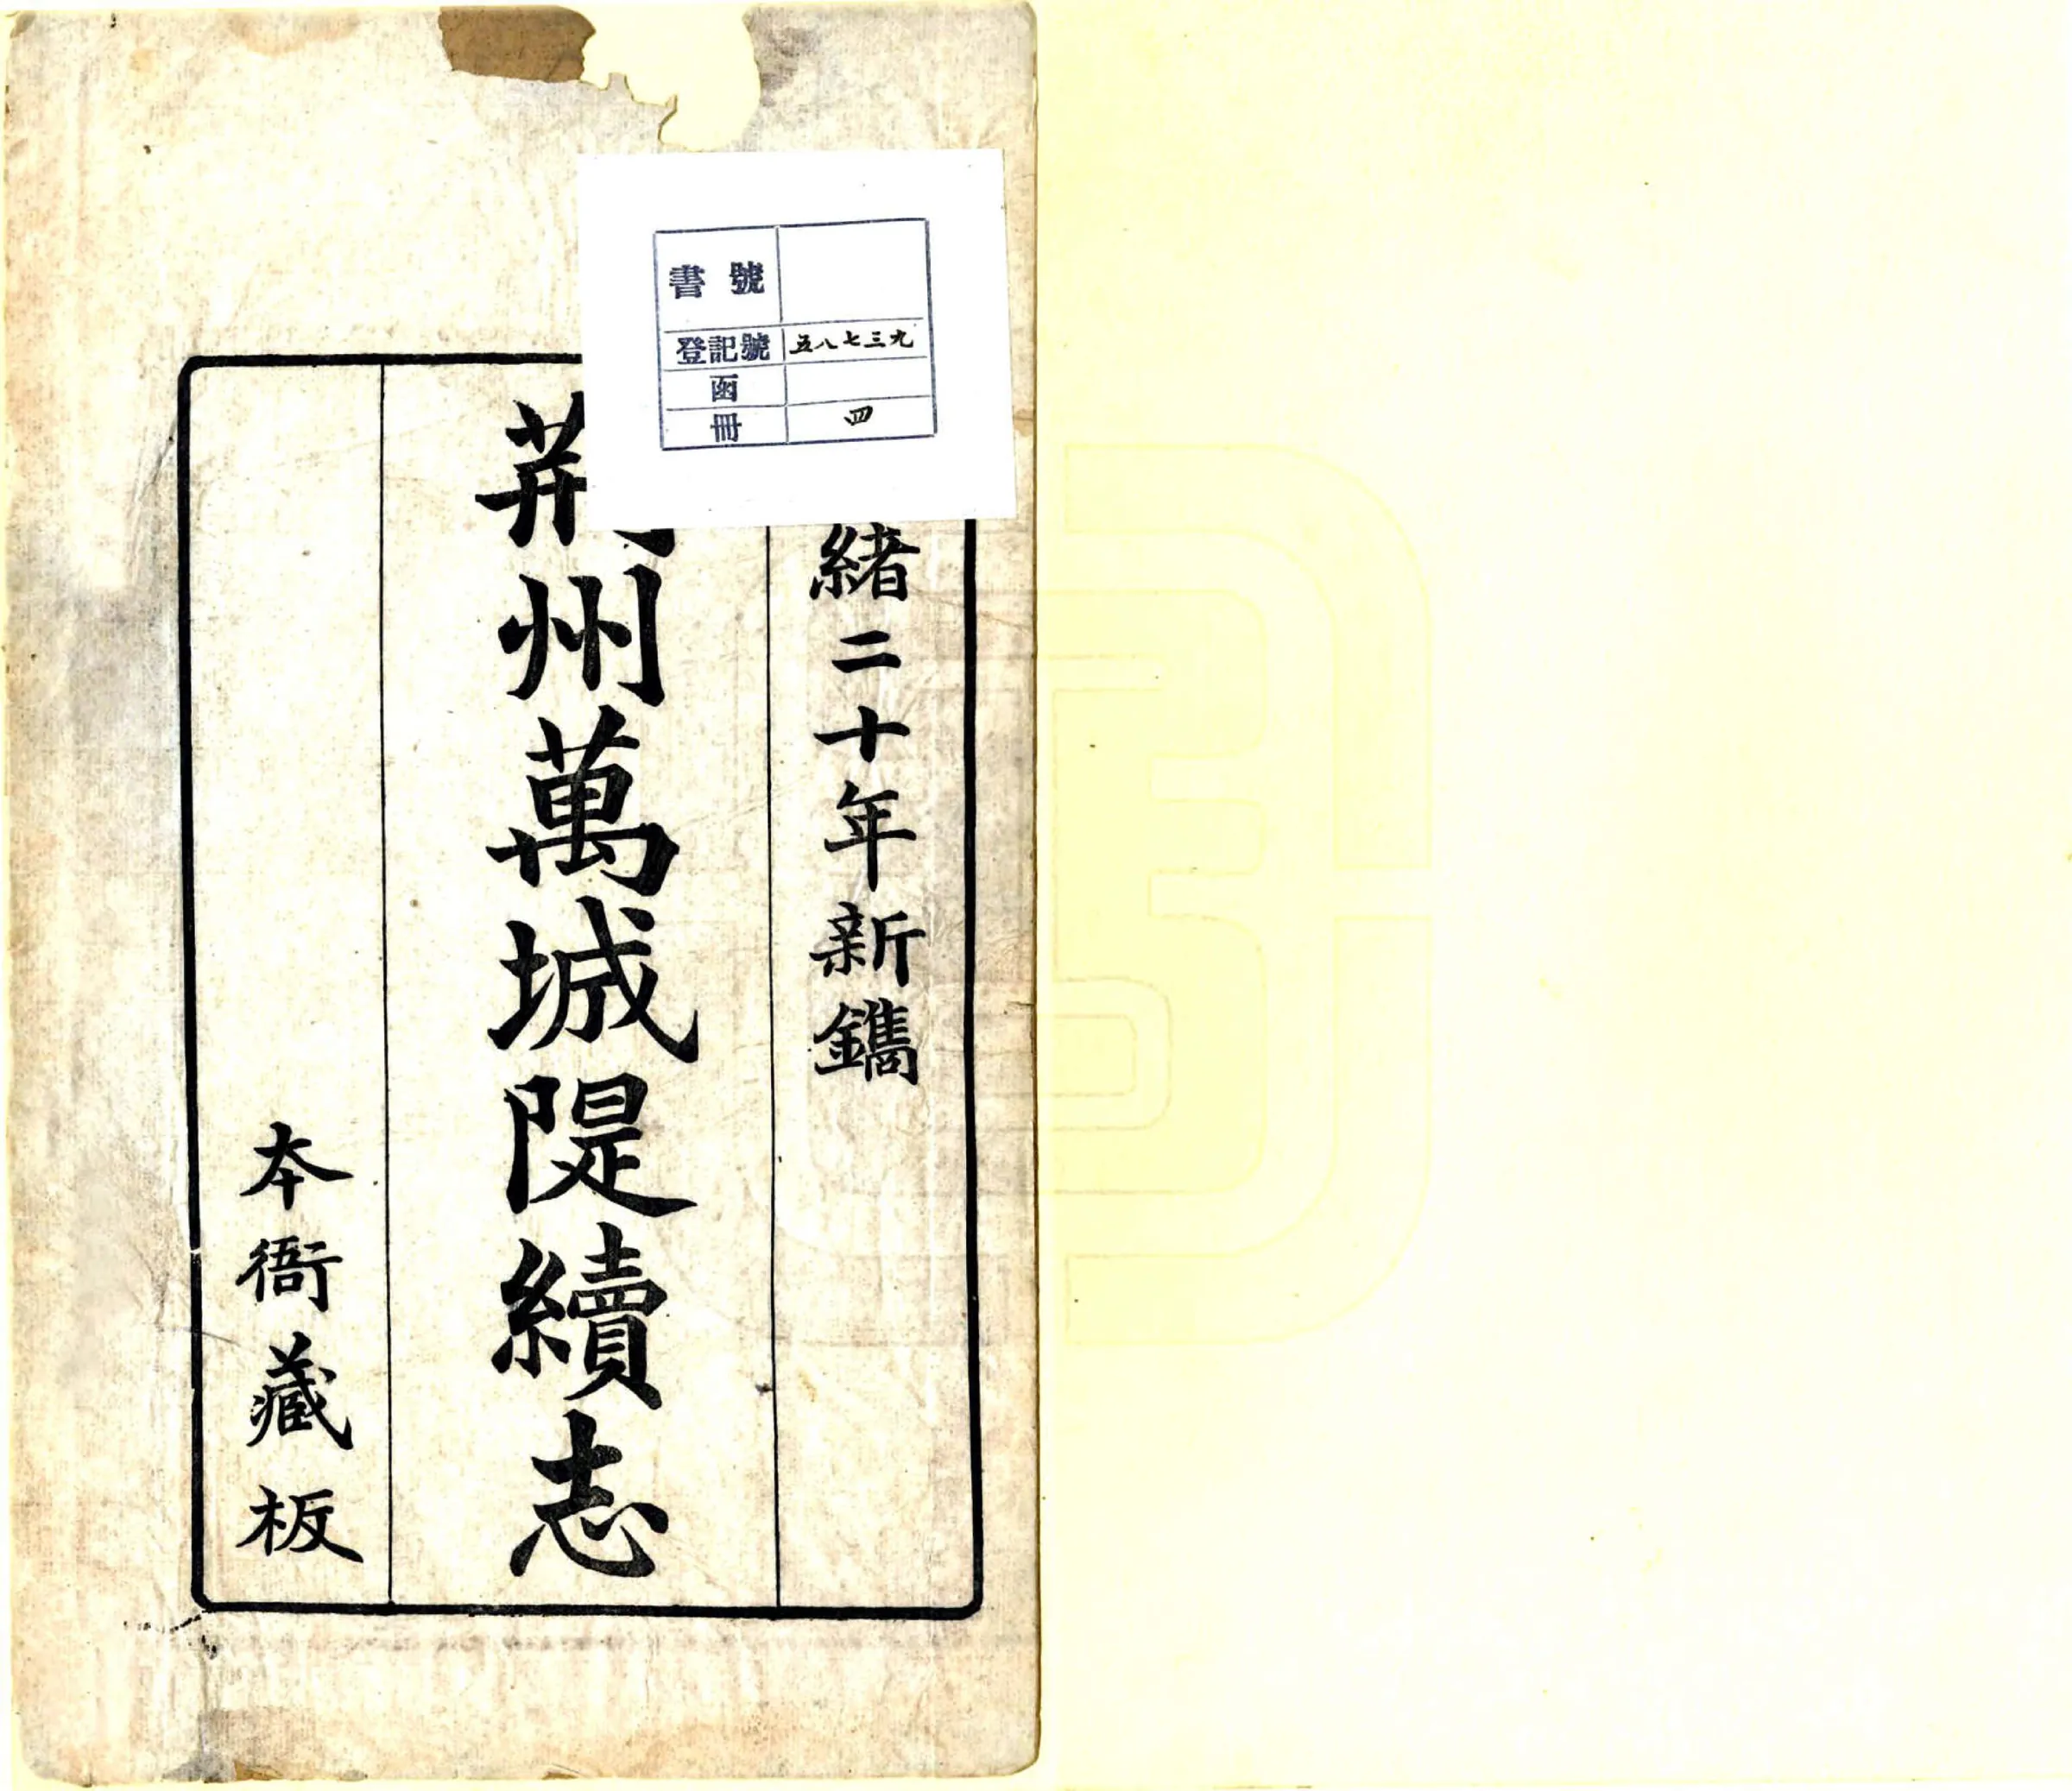 緒二十年新鐫
荆州萬城隄續志
本衙藏板
書號
登記號 五八七三九
函
冊 四